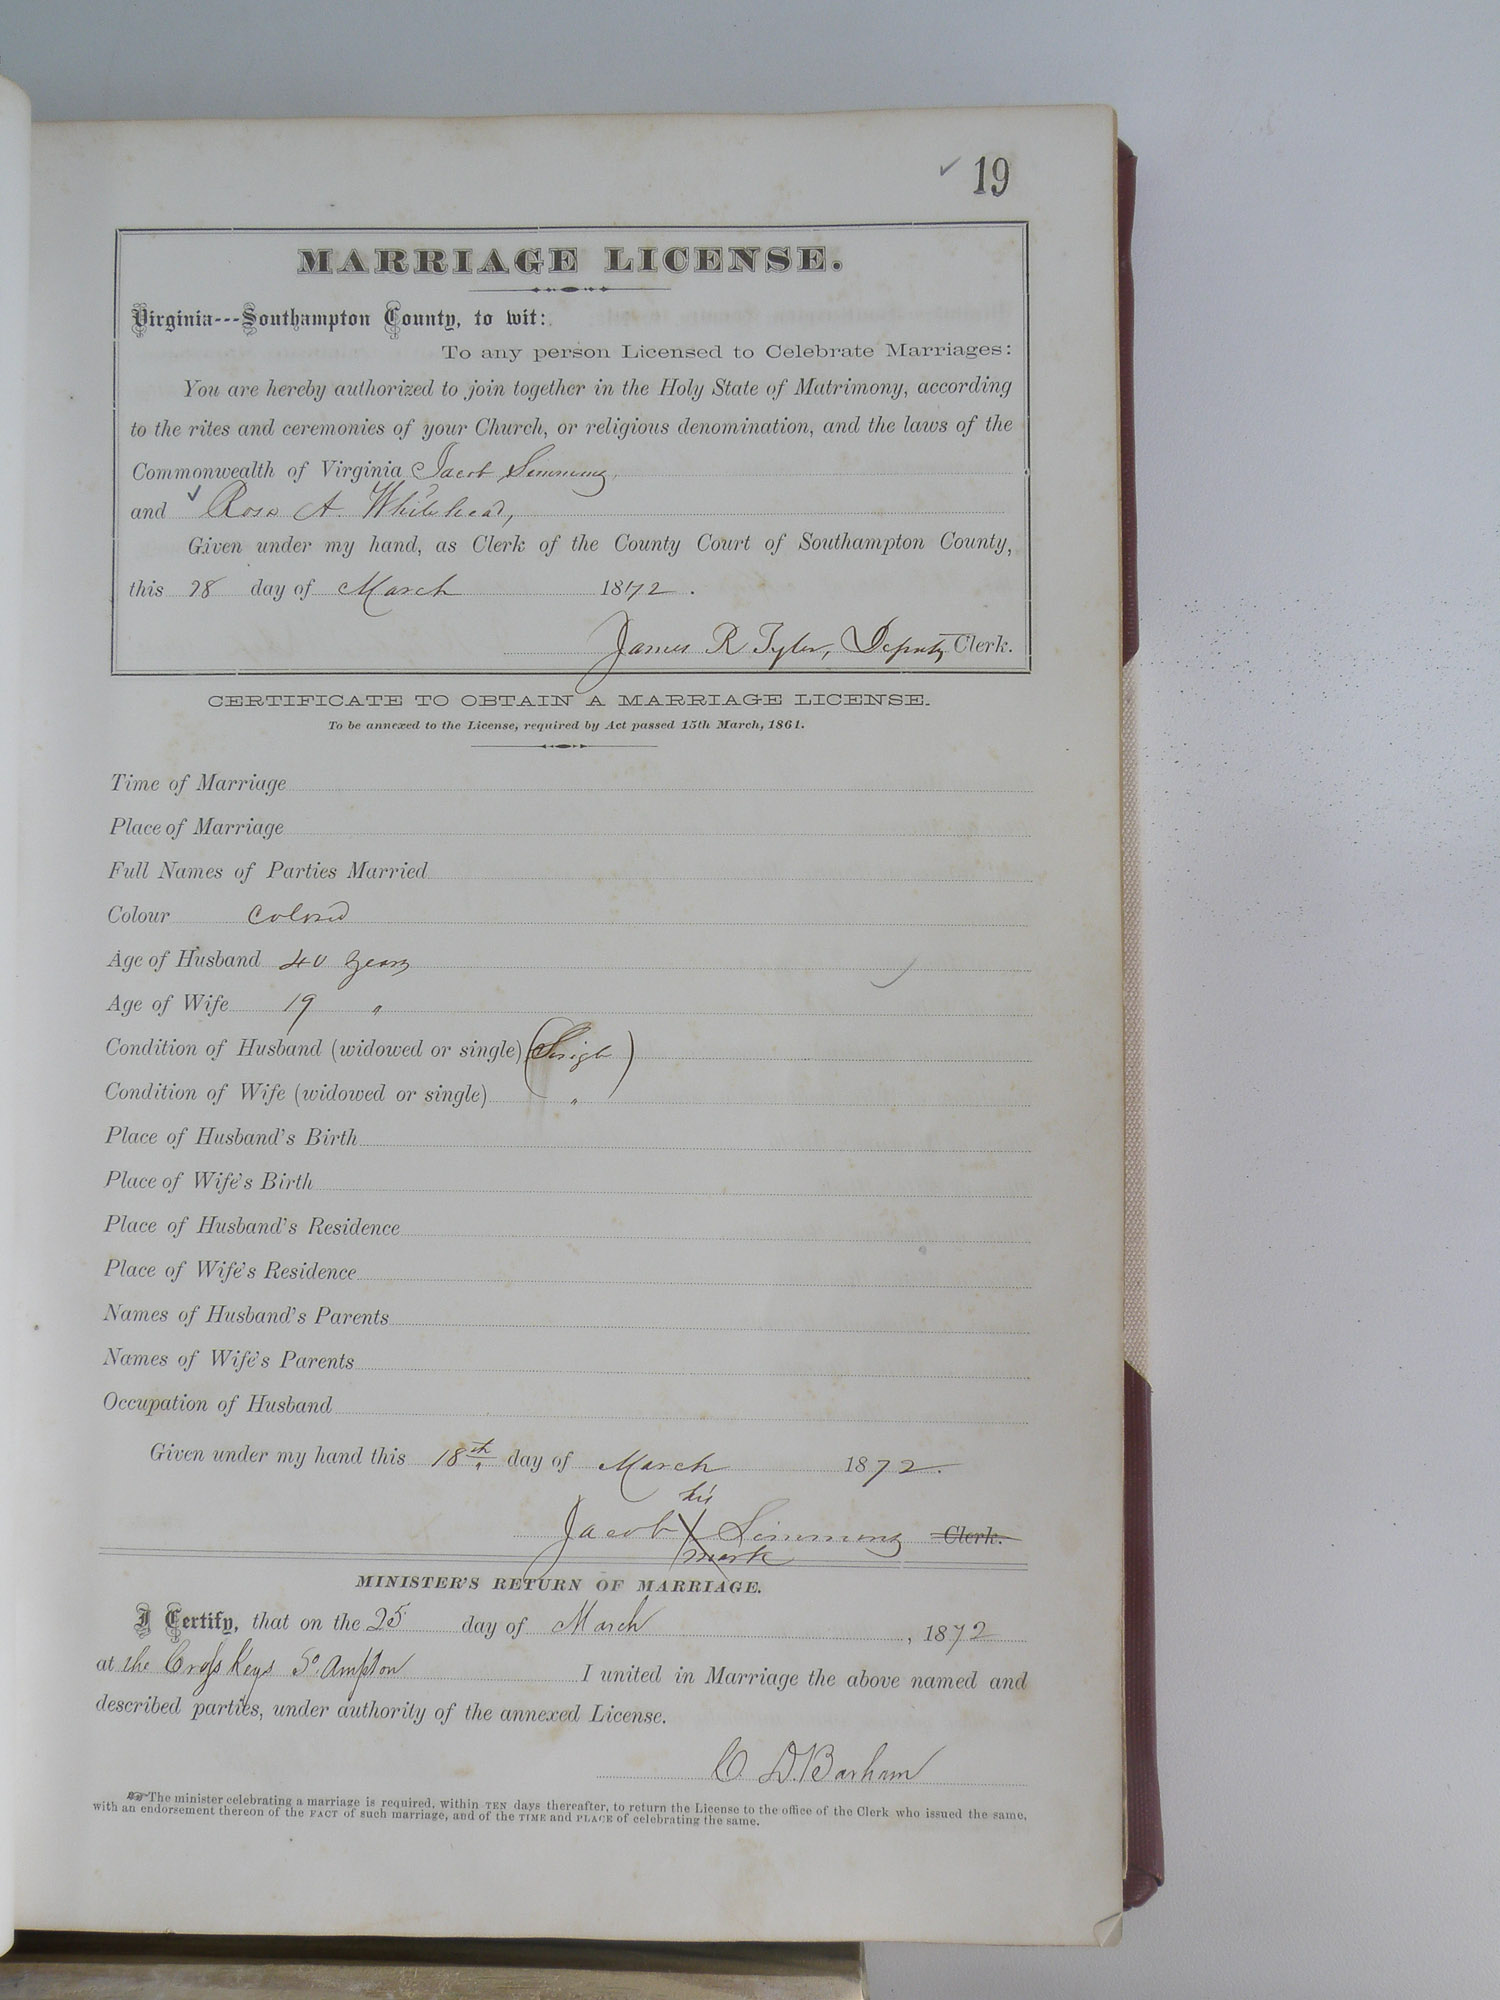 19
MARRIAGE LICENSE.
Virginia---Southampton County, to wit:
To any person Licensed to Celebrate Marriages:
You are hereby authorized to join together in the Holy State of Matrimony, according
to the rites and ceremonies of your Church, or religious denomination, and the laws of the
Commonwealth of Virginia Jacob Simmons,
and Rosa A. Whitehead,
Given under my hand, as Clerk of the County Court of Southampton County,
this 28 day of March 1872.
James R Tyler, Deputy Clerk.
CERTIFICATE TO OBTAIN A MARRIAGE LICENSE.
To be annexed to the License, required by Act passed 15th March, 1861.
Time of Marriage
Place of Marriage
Full Names of Parties Married
Colour Colored
Age of Husband 40 years
Age of Wife 19 "
Condition of Husband (widowed or single) (Single)
Condition of Wife (widowed or single) "
Place of Husband's Birth
Place of Wife's Birth
Place of Husband's Residence
Place of Wife's Residence
Names of Husband's Parents
Names of Wife's Parents
Occupation of Husband
Given under my hand this 18th day of March 1872.
his
Jacob X Simmons Clerk.
mark
MINISTER'S RETURN OF MARRIAGE.
I Certify, that on the 25 day of March, 1872
at the Cross Keys So. Ampton I united in Marriage the above named and
described parties, under authority of the annexed License.
C. D. Barham
The minister celebrating a marriage is required, within TEN days thereafter, to return the License to the office of the Clerk who issued the same,
with an endorsement thereon of the FACT of such marriage, and of the TIME and PLACE of celebrating the same.